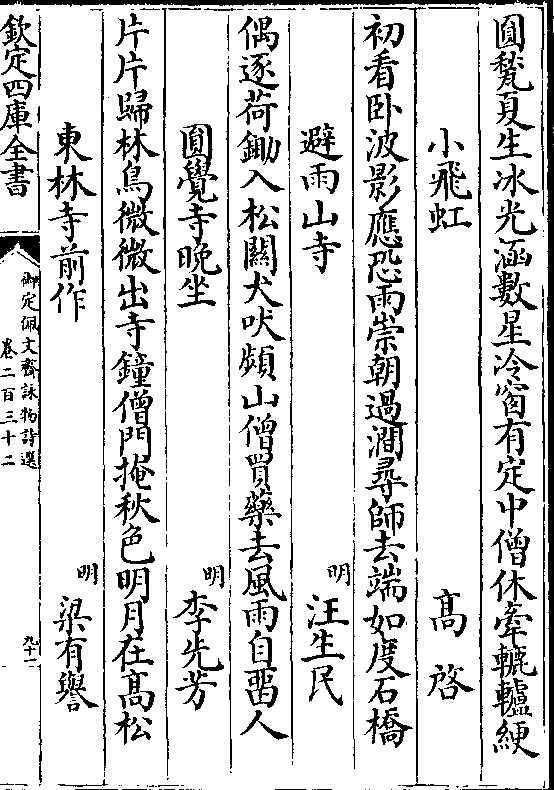 圓甃夏生冰光涵數星冷窗有定中僧休牽轆轤綆
小飛虹　高啓
初看卧波影應恐雨崇朝過澗尋師去端如度石橋
避雨山寺　明　汪生民
偶逐荷鋤入松關犬吠頻山僧買藥去風雨自留人
圓覺寺晚坐　明　李先芳
片片歸林鳥微微出寺鐘僧門掩秋色明月在髙松
東林寺前作　明　梁有譽
欽定四庫全書
御定佩文齋詠物詩選
卷二百三十二
九十一